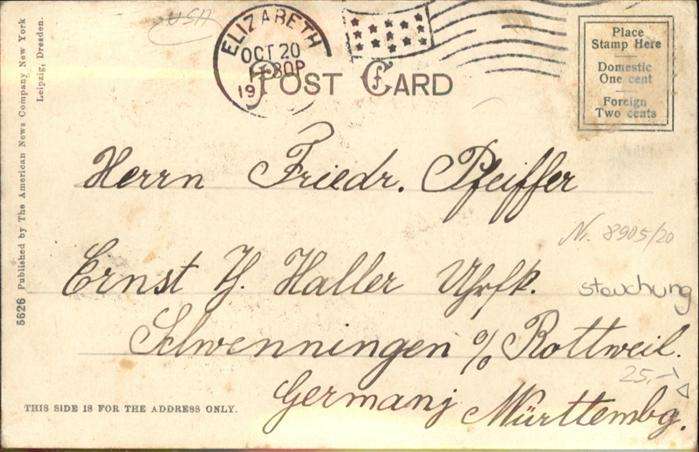 USA
ELIZABETH
OCT 20
30P
19
POST CARD
Place
Stamp Here
Domestic
One cent
Foreign
Two cents
5626 Published by The American News Company New York
Leipzig, Dresden.
Herrn Friedr. Pfeiffer
Nr. 8905/20
Ernst H. Haller Uhrfk.
stauchung
Schwenningen a/ Rottweil.
25,-
Germany Württembg.
THIS SIDE IS FOR THE ADDRESS ONLY.